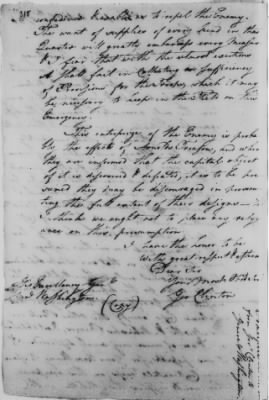 315
confidence to repel the Enemy.
The want of supplies of every kind in this
Quarter will greatly embarrass every Measure
& I fear that with the utmost exertions
I shall fail in Collecting a Sufficiency
of Provisions for the Troops which it may
be necessary to keep in the Field on this
Emergency.
The enterprize of the Enemy is probably
the effect of Arnold's Treason, and when
they are informed that the capital object
of it is discovered & defeated, it is to be
sumed they may be discouraged in
ting the full extent of their designs
I think we ought not to place any
ance on this presumption
I have the honor to be
with great respect & esteem
Dear Sir
Your Most Obed
Geo Clinton
His Excellency Gen
Washington
(159)
from Gov Clinton to
General Washington